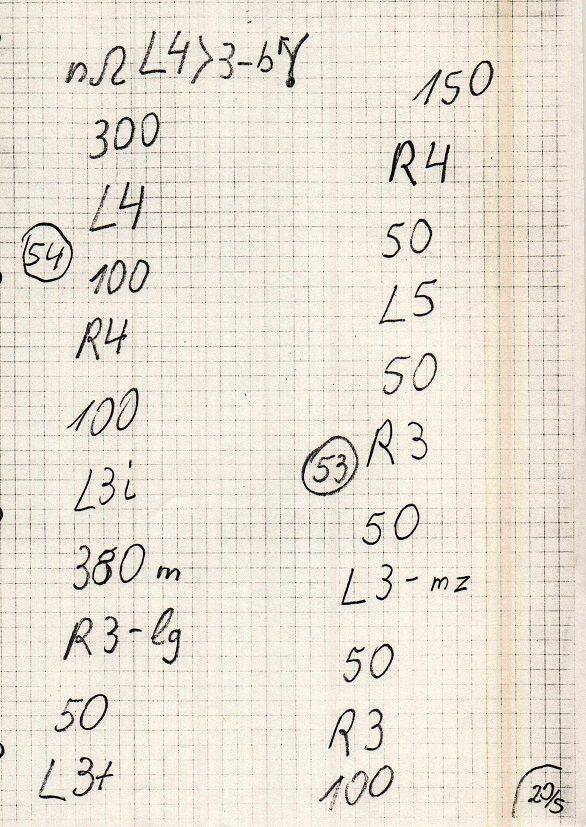 L4>3-
300
L4
54
100
R4
100
L3i
380 m
R3-lg
50
L3+
150
R4
50
L5
50
R3
53
50
L3-mz
50
R3
100
20/5